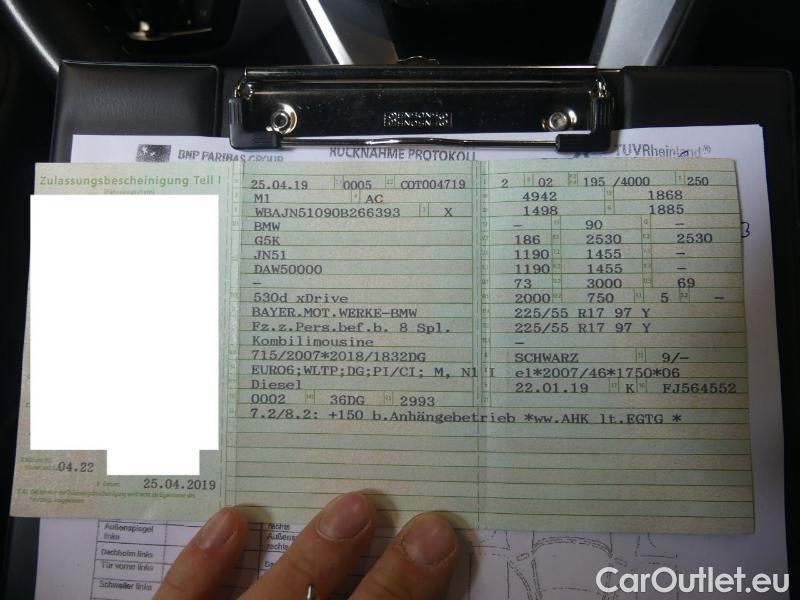 BNP PARIBAS GROUP
RÜCKNAHME PROTOKOLL
TÜVRheinland®
Zulassungsbescheinigung Teil I
25.04.19 0005 COT004719
M1 AC
WBAJN51090B266393 X
BMW
G5K
JN51
DAW50000
–
530d xDrive
BAYER.MOT.WERKE-BMW
Fz.z.Pers.bef.b. 8 Spl.
Kombilimousine
715/2007*2018/1832DG
EURO6;WLTP;DG;PI/CI; M, N1 I
Diesel
0002 36DG 2993
7.2/8.2: +150 b.Anhängebetrieb *ww.AHK lt.EGTG *
2 02 195 /4000 250
4942 1868
1498 1885
– 90 –
186 2530 2530
1190 1455 –
1190 1455 –
73 3000 69
2000 750 5 –
225/55 R17 97 Y
225/55 R17 97 Y
–
SCHWARZ 9/–
e1*2007/46*1750*06
22.01.19 K FJ564552
04.22
25.04.2019
Außenspiegel
links
rechts
Dachholm links
Tür vorne links
Schweller links
CarOutlet.eu